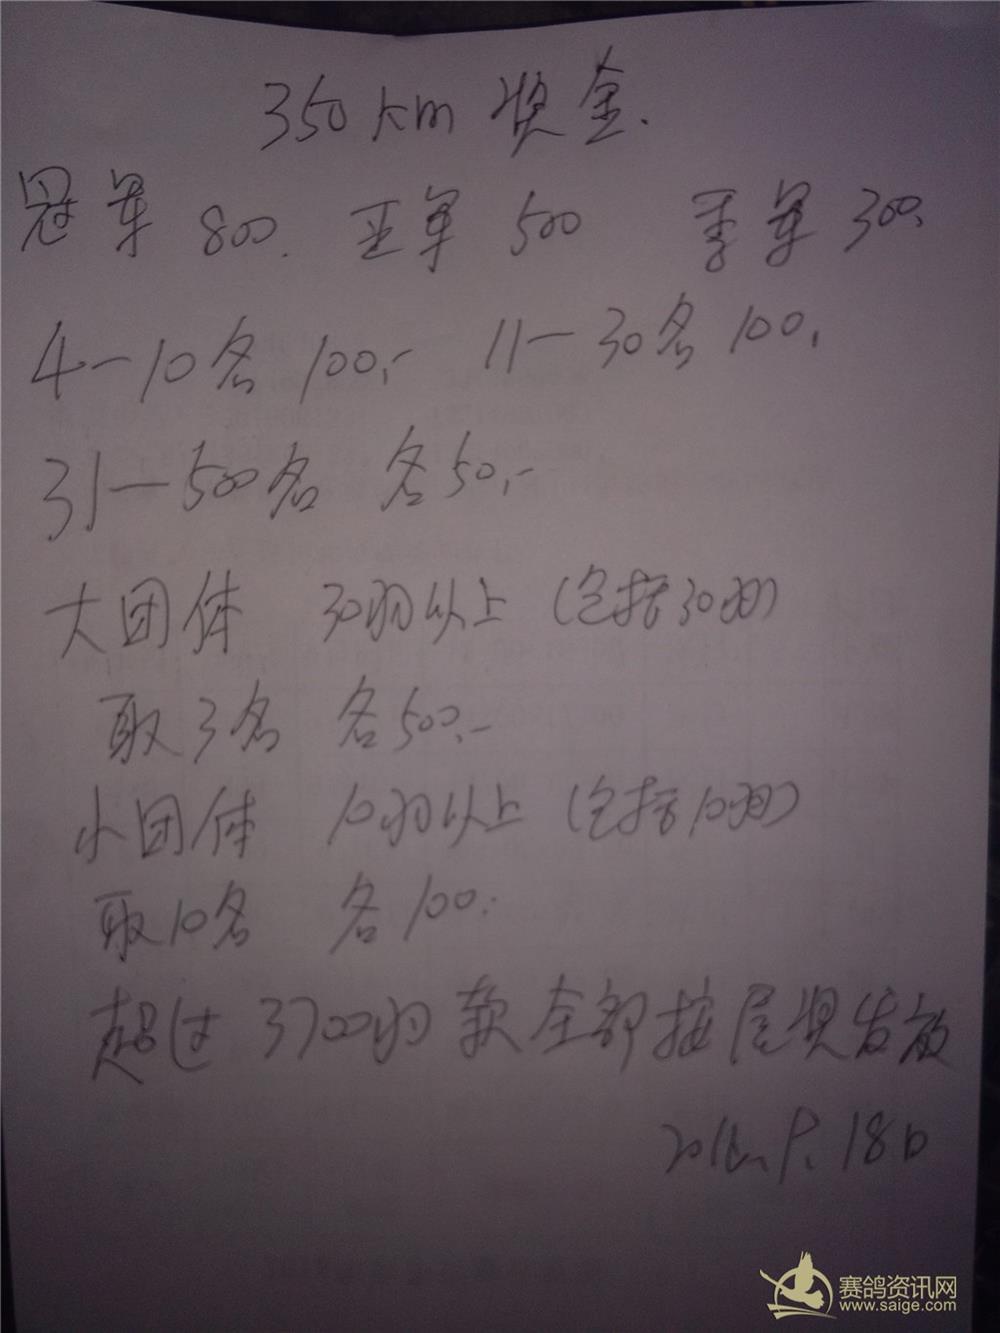 350km 奖金.
冠军 800. 亚军 500 季军 300.
4—10名 100.- 11—30名 100.
31—500名 各50.-
大团体 30羽以上 (包括30羽)
取3名 各500.-
小团体 10羽以上 (包括10羽)
取10名 各100.
超过3700羽款全部按尾奖发放
18日
赛鸽资讯网
www.saige.com